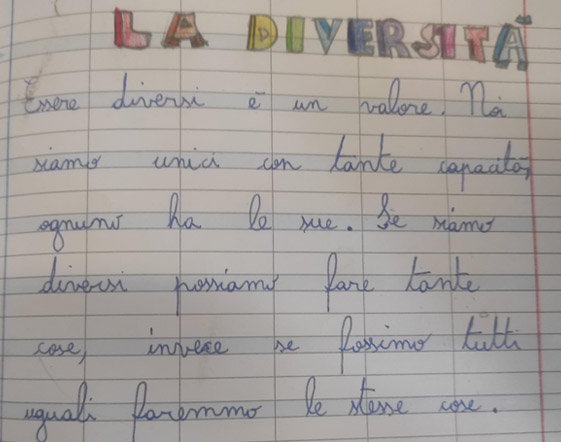 LA DIVERSITÀ
Essere diversi è un valore. Noi
siamo unici con tante capacità,
ognuno ha le sue. Se siamo
diversi possiamo fare tante
cose, invece se fossimo tutti
uguali faremmo le stesse cose.